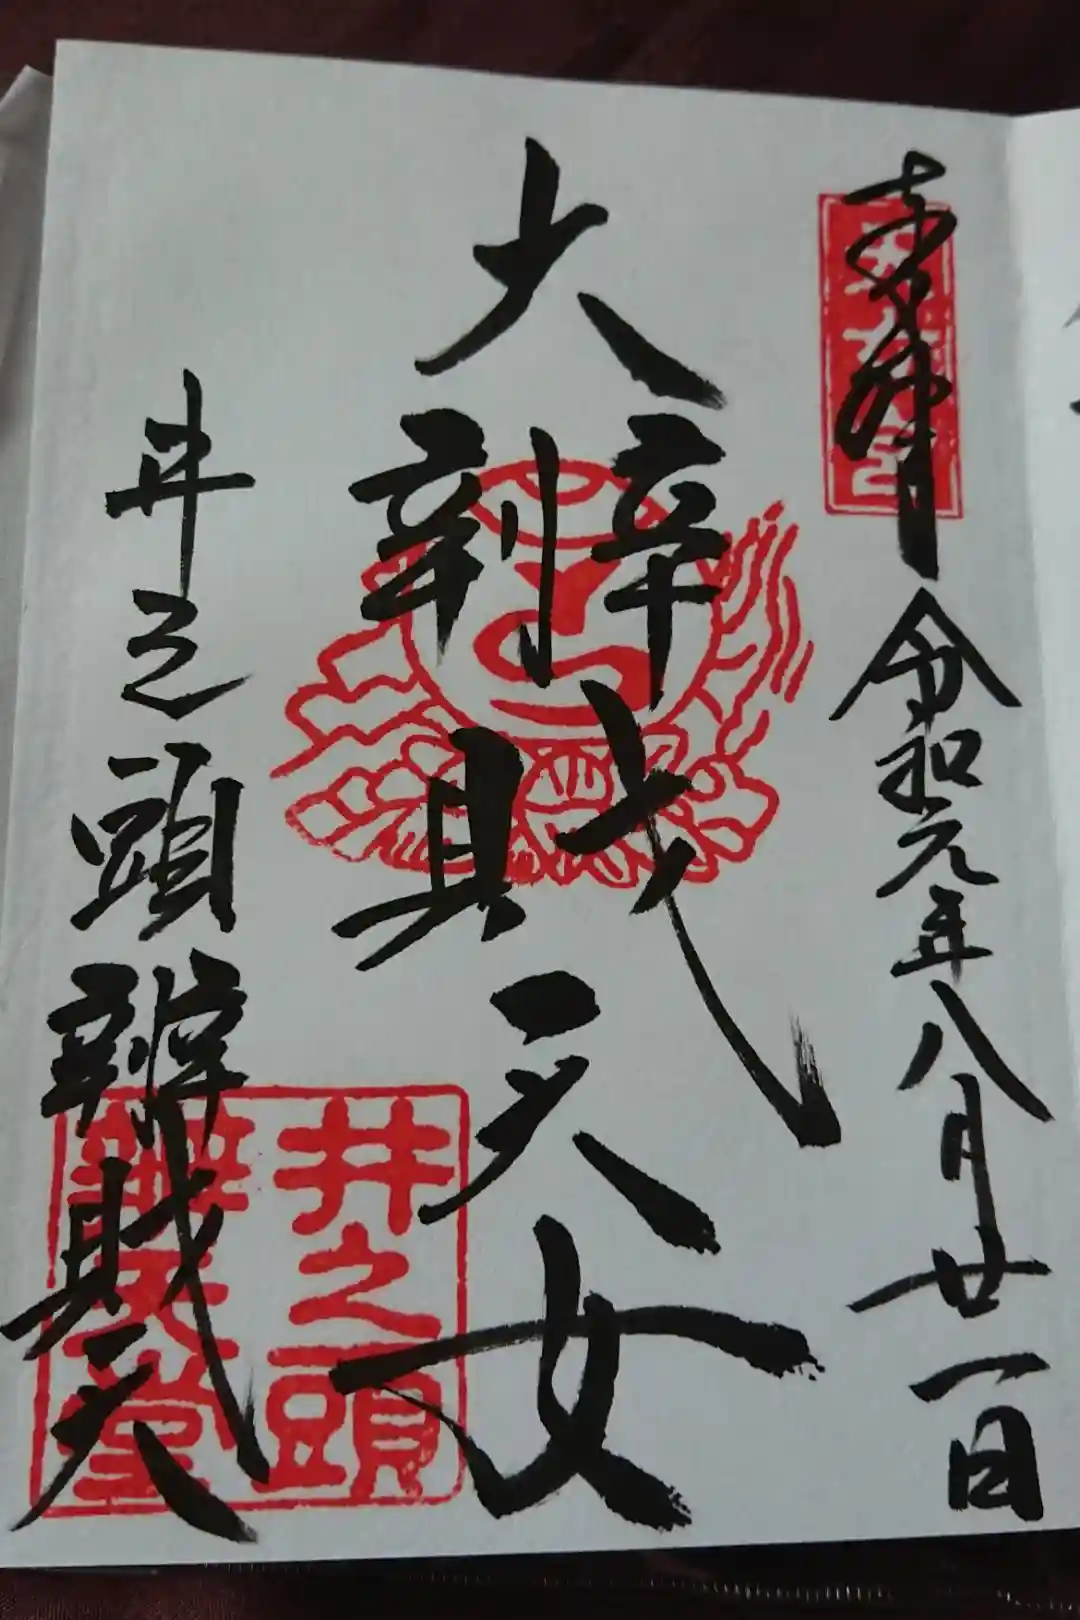 奉拝 令和元年八月廿一日
大辨財天女
井之頭辨財天
井之頭
辨天堂